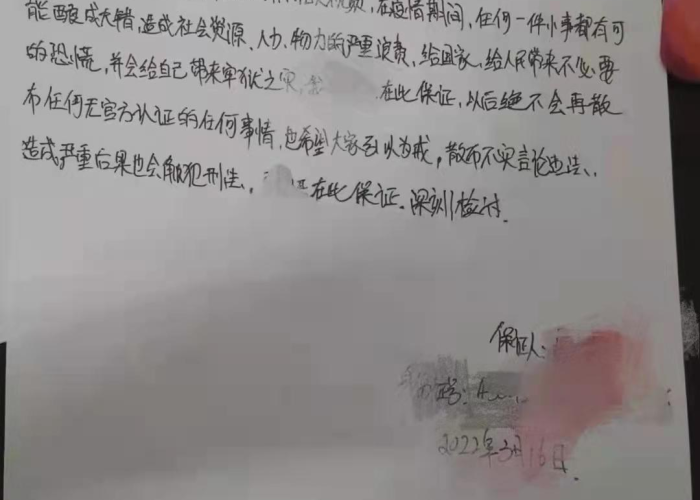 在疫情期间,任何一件小事都有可
能酿成大错,造成社会资源、人力、物力的严重浪费,给国家、给人民带来不必要
的恐慌,并会给自己带来牢狱之灾,在此保证,以后绝不会再散
布任何无官方认证的任何事情,也希望大家引以为戒,散布不实言论违法,
造成严重后果也会触犯刑法,在此保证.深刻检讨.
保证人:
2022年3月16日.